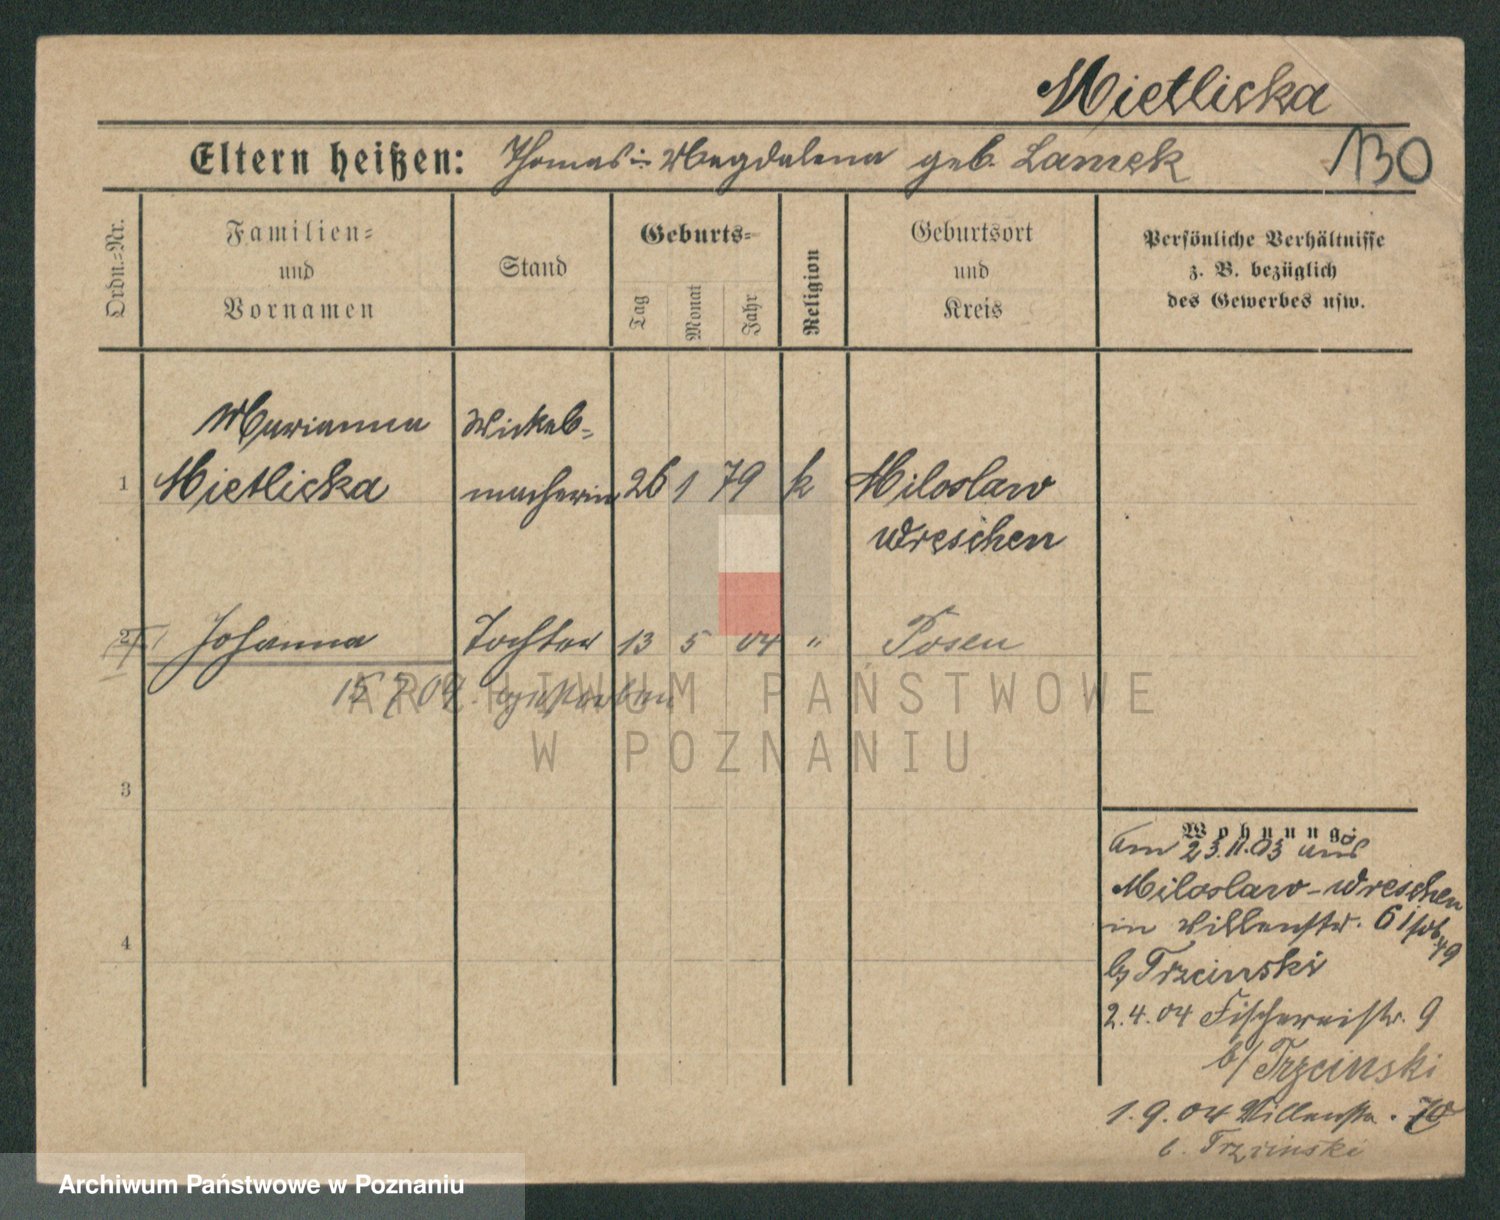 Mietlicka
Eltern heißen: Thomas u Magdalena geb. Lamek
130
Ordn.=Nr.
Familien=
und
Vornamen
Stand
Geburts=
Tag
Monat
Jahr
Religion
Geburtsort
und
Kreis
Persönliche Verhältnisse
z. B. bezüglich
des Gewerbes usw.
Marianna Wickel=
1 Mietlicka macherin 26 1 79 k Miloslaw
Wreschen
2 Johanna Tochter 13 5 04 " Posen
15 7 04 gestorben
ARCHIWUM PAŃSTWOWE
W POZNANIU
3
4
Wohnung:
am 23.11.03 aus
Miloslaw-Wreschen
in 6
b/ Trzcinski
2.4.04 Fischereistr. 9
b/ Trzcinski
1.9.04
b. Trzcinski
Archiwum Państwowe w Poznaniu